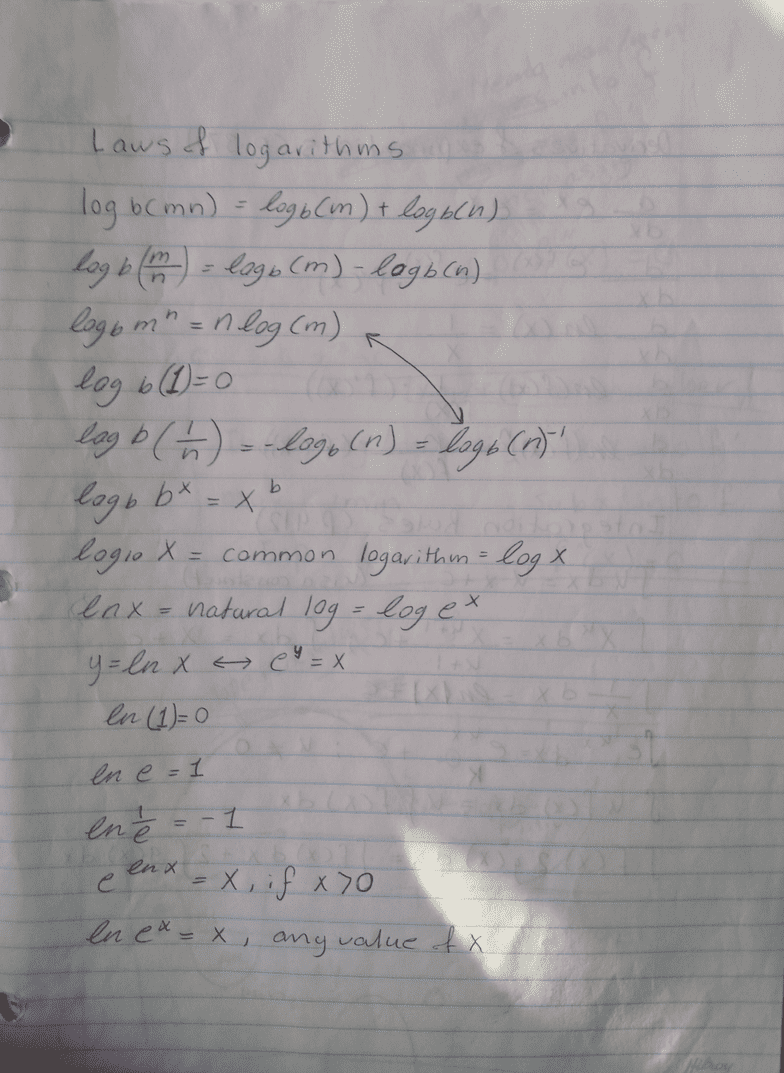 Laws of logarithms
log b(mn) = log_b(m) + log b(n)
log b(m/n) = log_b(m) - log b(n)
log_b mⁿ = n log(m)
log b(1) = 0
log b(1/n) = -log_b(n) = log_b(n)⁻¹
log_b bˣ = x ᵇ
log₁₀ x = common logarithm = log x
ln x = natural log = log e ˣ
y = ln x ↔ eʸ = x
ln (1) = 0
ln e = 1
ln 1/e = -1
e^(ln x) = x, if x > 0
ln eˣ = x, any value of x
Hilroy